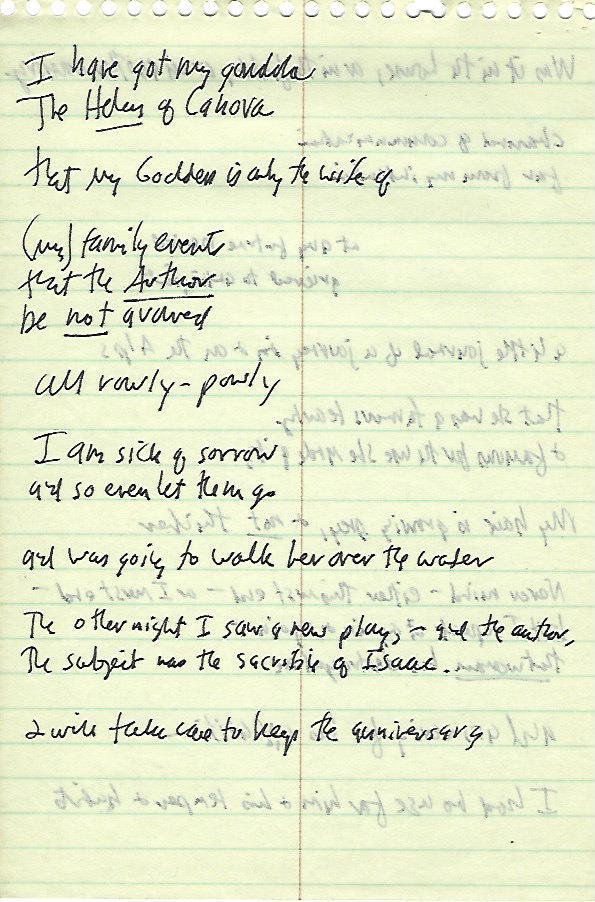 I have got my gondola
The Helen of Canova
that my Goddess is only the wife of
(my) family events
that the Author
be not avowed
all rowly-powly
I am sick of sorrow
and so even let them go
and was going to walk her over the water
The other night I saw a new play, – and the author,
The subject was the sacrifice of Isaac..
I will take care to keep the anniversary